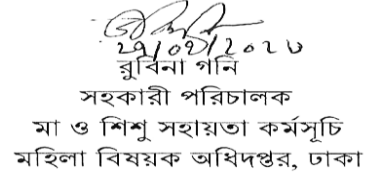 রুবিনা গনি
সহকারী পরিচালক
মা ও শিশু সহায়তা কর্মসূচি
মহিলা বিষয়ক অধিদপ্তর, ঢাকা